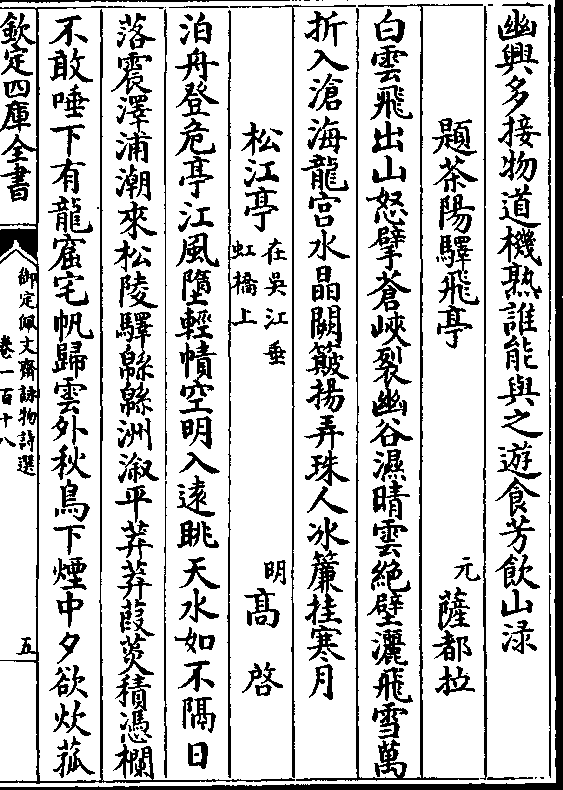 幽興多接物道機熟誰能與之遊食芳飲山渌
題茶陽驛飛亭　元　薩都拉
白雲飛出山怒擘蒼峽裂幽谷濕晴雲絶壁灑飛雪萬
折入滄海龍宮水晶闕簸揚弄珠人冰簾挂寒月
松江亭在吳江垂虹橋上　明　高　啓
泊舟登危亭江風墮輕幘空明入遠眺天水如不隔日
落震澤浦潮來松陵驛緜緜洲溆平莽莽葭菼積憑欄
不敢唾下有龍窟宅帆歸雲外秋鳥下煙中夕欲炊菰
欽定四庫全書
御定佩文齋詠物詩選
卷一百十八
五